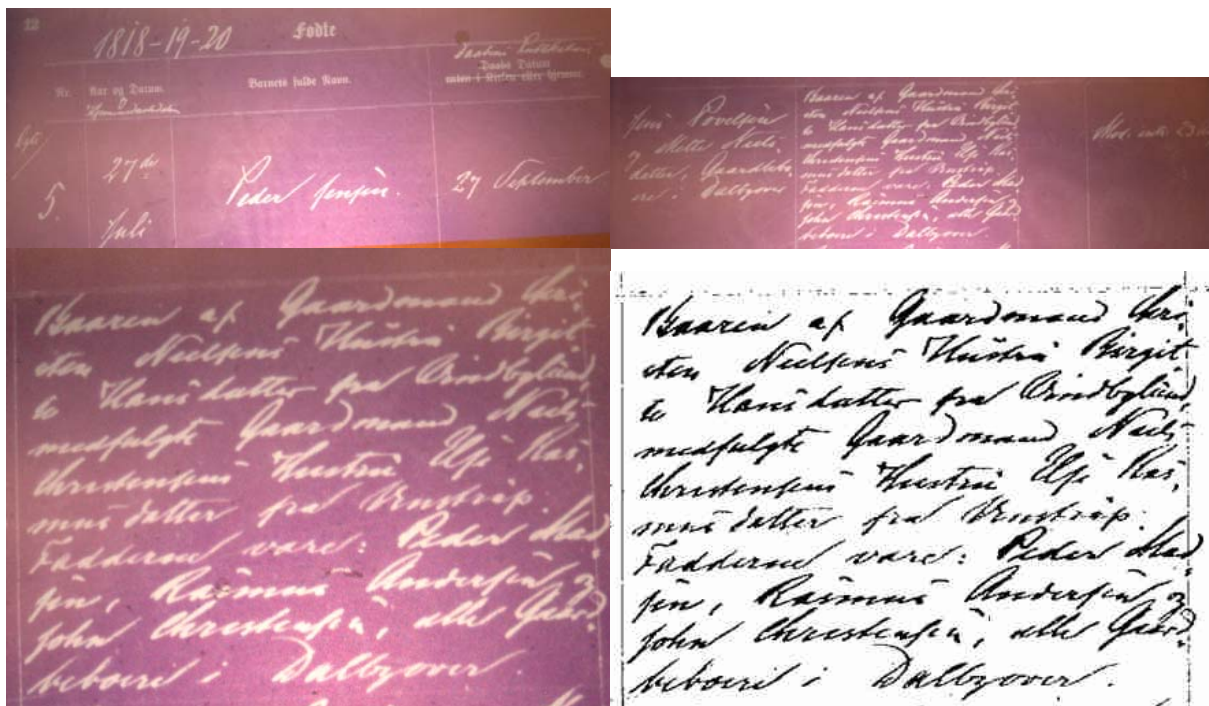 12
1818-19-20
Fødte
Daabens Publikation
Daabs Datum
Nr.
Aar og Datum.
Barnets fulde Navn.
enten i Kirken eller hjemme.
Hjemmedøbt
Ægte
5.
27de
Juli
Peder Jensen.
27 September
Jens Povelsen
og Mette Niels-
datter, Gaardbebo-
ere i Dalbyover
Baaren af Gaardmand Chri-
sten Nielsens Hustru Birgit-
te Hansdatter fra Brindbylund,
medfulgte Gaardmand Niels
Christensens Hustru Else Ras-
musdatter fra Unstrup.
Fadderne vare: Peder Mad-
sen, Rasmus Andersen og
John Christensen, alle Gaard-
beboere i Dalbyover.
Mod. intr. 23
Baaren af Gaardmand Chri-
sten Nielsens Hustru Birgit-
te Hansdatter fra Brindbylund,
medfulgte Gaardmand Niels
Christensens Hustru Else Ras-
musdatter fra Unstrup.
Fadderne vare: Peder Mad-
sen, Rasmus Andersen og
John Christensen, alle Gaard-
beboere i Dalbyover.
Baaren af Gaardmand Chri-
sten Nielsens Hustru Birgit-
te Hansdatter fra Brindbylund,
medfulgte Gaardmand Niels
Christensens Hustru Else Ras-
musdatter fra Unstrup.
Fadderne vare: Peder Mad-
sen, Rasmus Andersen og
John Christensen, alle Gaard-
beboere i Dalbyover.